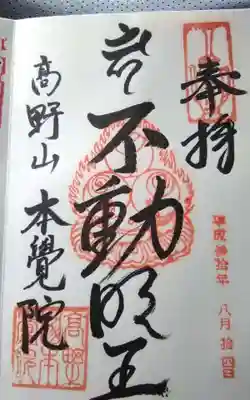 奉拝
平成叁拾年 八月 拾四日
不動明王
高野山 本覺院